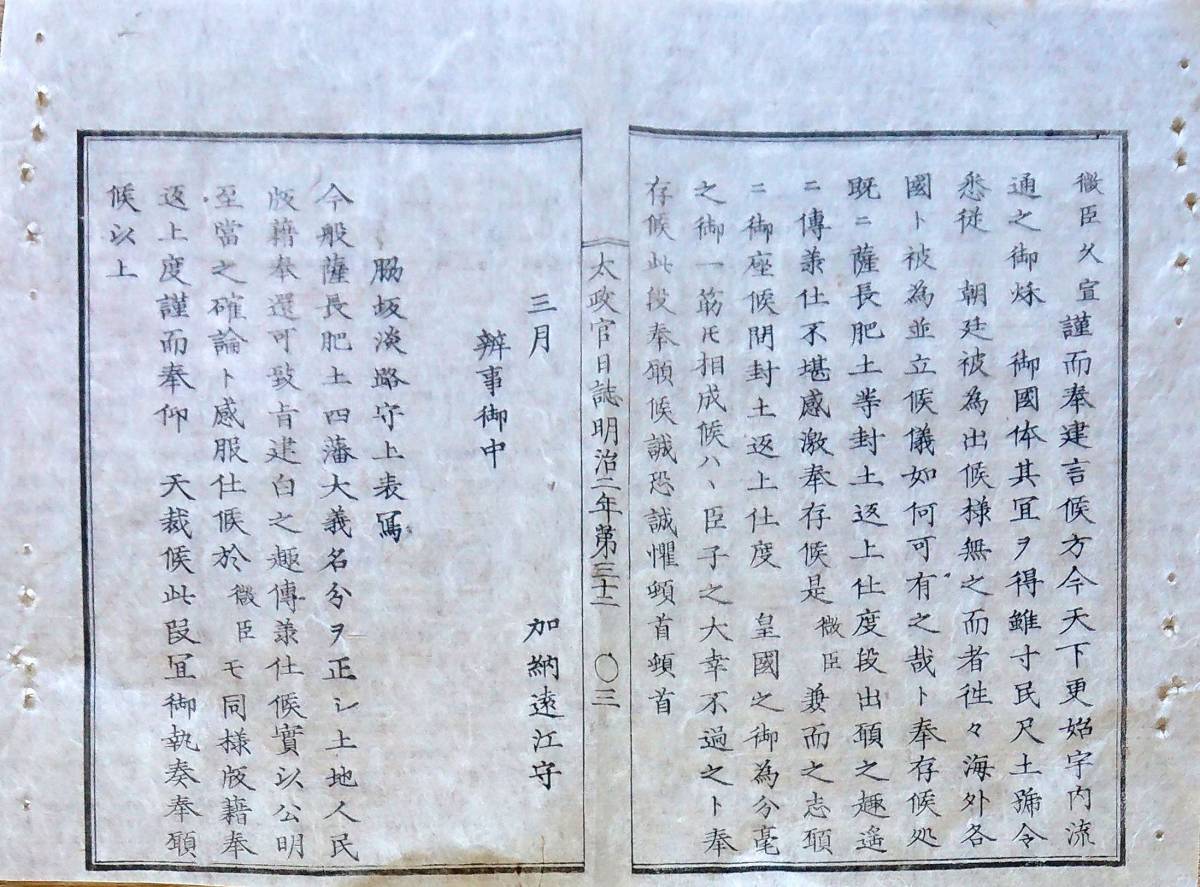 微臣久宜謹而奉建言候方今天下更始宇内流
通之御秌　御國体其冝ヲ得雖寸民尺土號令
悉従　朝廷被為出候様無之而者徃々海外各
國ト被為並立候儀如何可有之哉ト奉存候処
既ニ薩長肥土等封土返上仕度段出願之趣遙
ニ傳兼仕不堪感激奉存候是微臣兼而之志願
ニ御座候間封土返上仕度　皇國之御為分毫
之御一筋モ相成候ハヽ臣子之大幸不過之ト奉
存候此段奉願候誠恐誠懼頓首頓首
太政官日誌明治二年第三十二　〇三
三月　加納遠江守
辨事御中
脇坂淡路守上表冩
今般薩長肥土四藩大義名分ヲ正シ土地人民
版藉奉還可致旨建白之趣傳兼仕候實以公明
至當之確論ト感服仕候於微臣モ同様版藉奉
返上度謹而奉仰　天裁候此段冝御執奏奉願
候以上